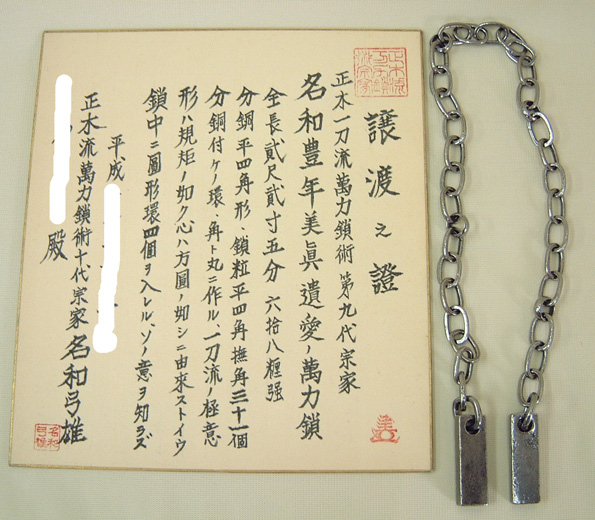 譲渡之證
正木一刀流萬力鎖術 第九代宗家
名和豊年美眞遺愛ノ萬力鎖
全長貳尺貳寸五分 六拾八糎强
分銅平四角形、鎖粒平四角撫角三十一個
分銅付ケノ環、角ト丸ニ作ル、一刀流ノ極意
形ハ規矩ノ如ク心ハ方圓ノ如シニ由來ストイウ
鎖中ニ圓形環四個ヲ入レル、ソノ意ヲ知ラズ
平成
正木流萬力鎖術十代宗家 名和弓雄
殿